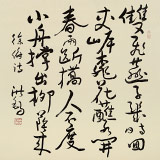 雙飛燕子幾時回
夾岸桃花蘸水開
春雨斷橋人不度
小舟撐出柳蔭來
徐俯詩